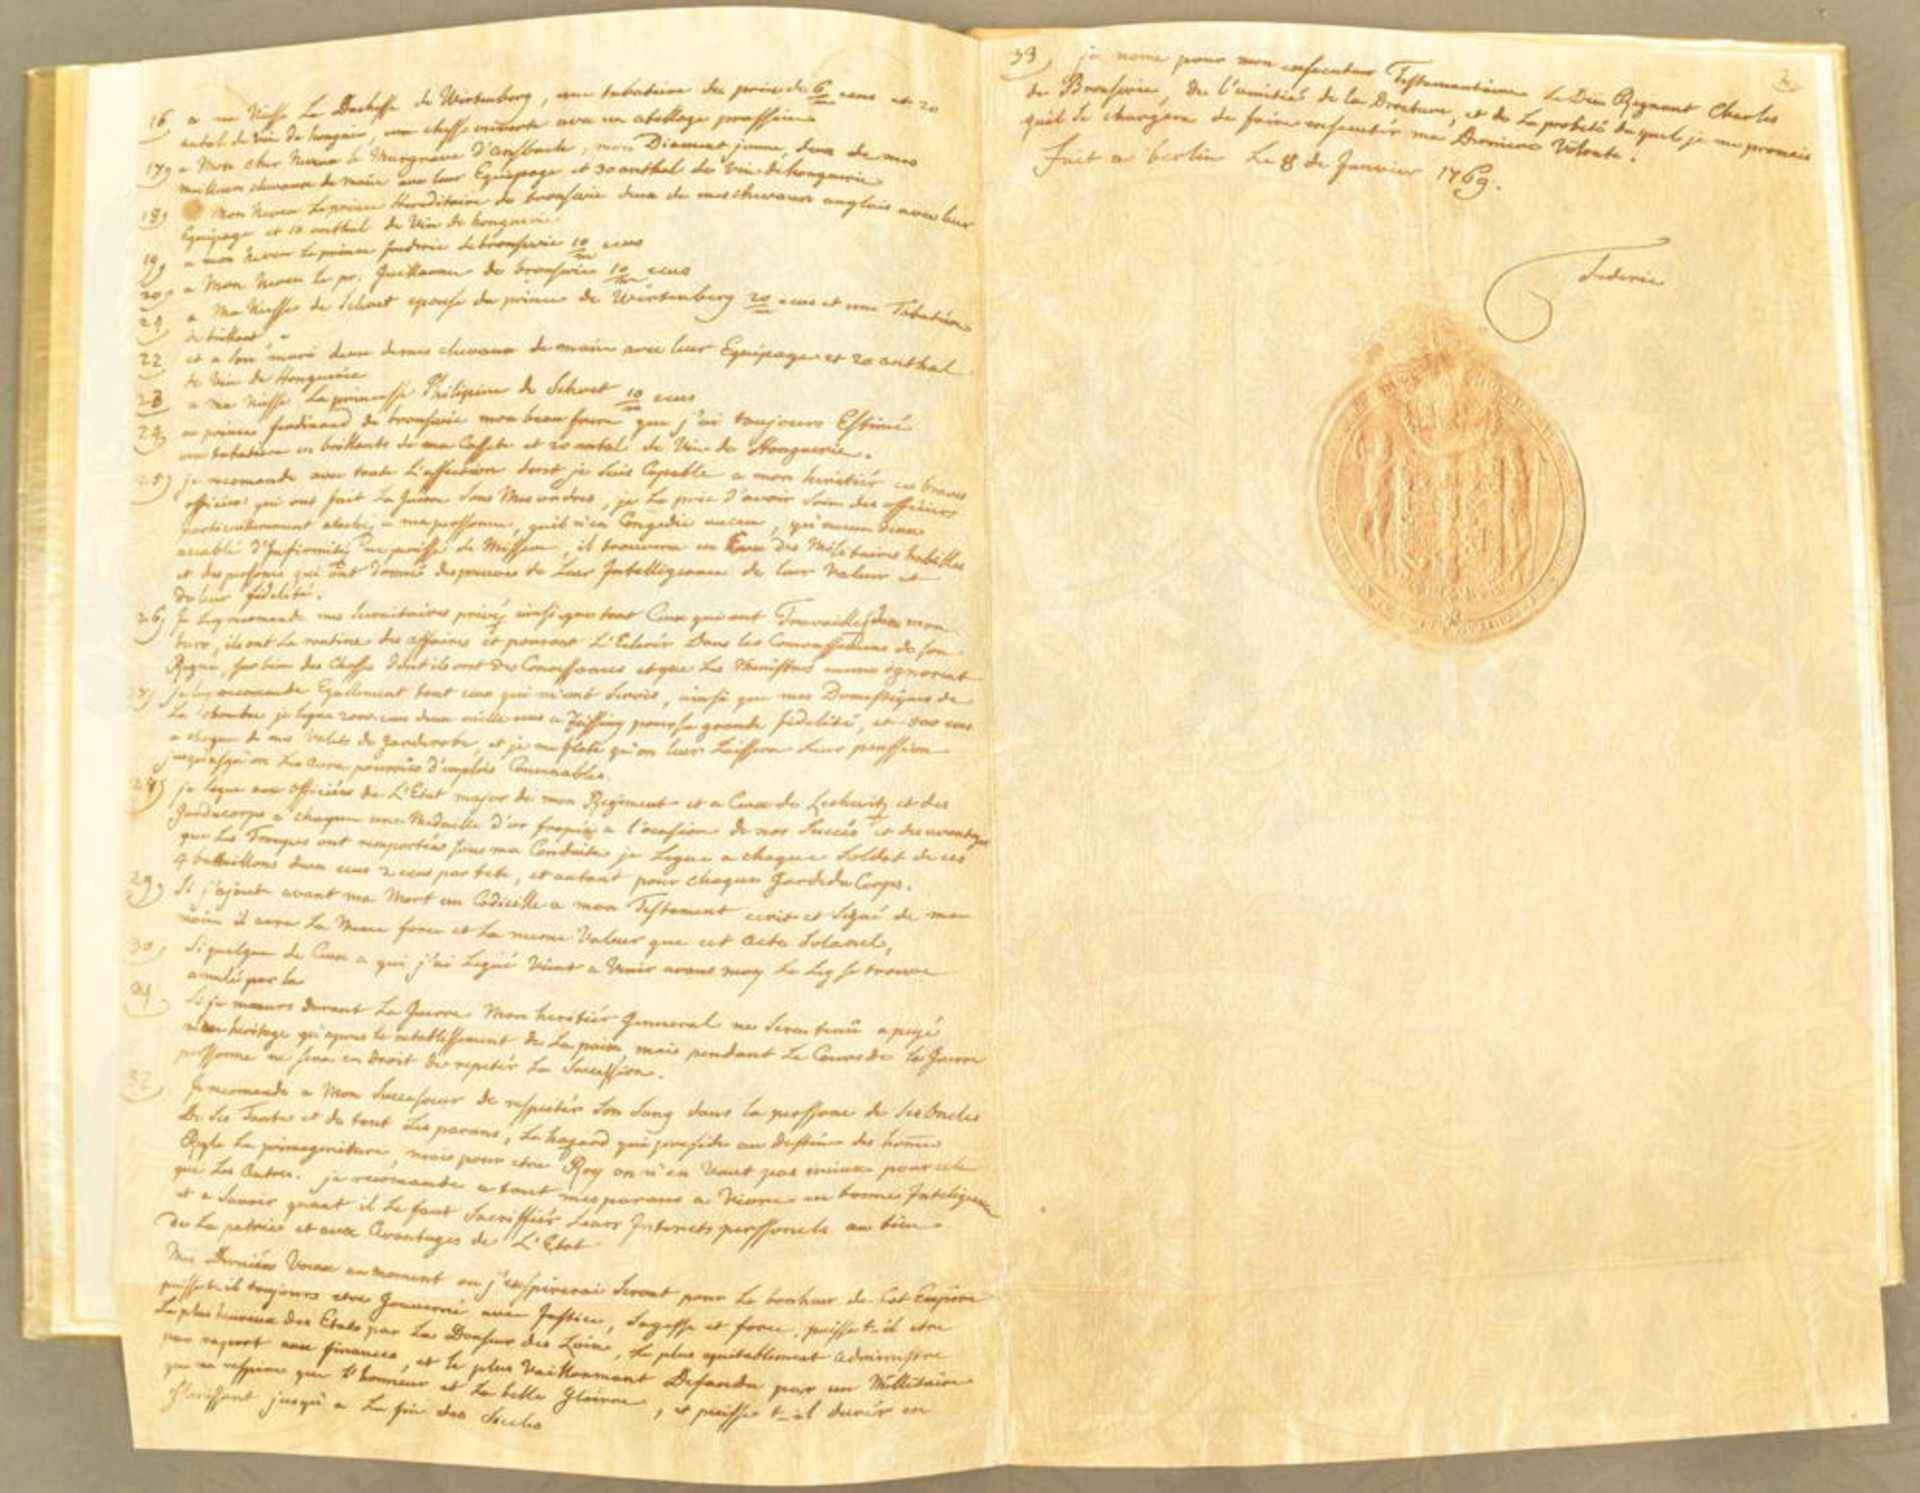 16, a ma Niesse La Duchesse de Wirtemberg, une tabatiere du prix de 6/m ecus et 20
antal de Vin de hongrie, une
17, a Mon cher Neveu le Margrave d'Ansbach, mon Diamant jaune, deux de mes
meilleurs chevaux de main avec leur Equipage et 30 anthal de Vin de hongrie
18, a Mon Neveu Le prince Hereditaire de bronsvic deux de mes chevaux anglais avec leur
Equipage et 10 anthal de Vin de hongrie
19, a mon Neveu Le prince frederic de bronsvic 10/m ecus
20, a Mon Neveu le pr. Guillaume de bronsvic 10/m ecus
21, a Ma Niesse de Schwet epouse du prince de Wirtemberg 20/m ecus et une Tabatiere
de brillant
22, et a son mari deux de mes chevaux de main avec leur Equipage et 20 anthal
de Vin de Hongrie
23, a ma Niesse La princesse Philipine de Schwet 10/m ecus
24, au prince ferdinand de bronsvic mon beau frere que j'ai toujours Estimé
une tabatiere en brillants de ma Cassete et 20 antal de Vin de Hongrie.
25, je recomande avec toute L'affection dont je suis Capable a mon heritiér ces braves
officiers qui ont fait La Guere sous Mes ordres, je Le prie d'avoir soin des officiers
particulierement atachéz a ma personne, qu'il n'en Congedie aucun, qu'aucun d'eux
acablé d'Infirmitéz ne perisse de Misere, il trouvera en Eux des Militaires habilles
et des persones qui ont donné des preuves de Leur Intelligeance de leur Valeur et
de leur fidelité.
26, Je Luy recomande mes Secretaires privéz ainsi que tout Ceux qui ont Travaillé dans mon
bureau, ils ont La routine des affaires et pouront L'Eclerér Dans les Comencemens de son
Regne, sur bien des Choses dont ils ont des Conoissances et que Les Ministres meme ignorent
27, Je luy recomande Egallement tout ceux qui m'ont Servis, ainsi que mes Domestiques de
La Chambre je legue 2000 ecus deux mille ecus a Zeising pour sa grande fidelité, et 500 ecus
a chaqun de mes Valets de Garderobe, et je me flate qu'on leur Laissera leur penssion
jusqu'asqu'on Les aura pourvûs d'emplois Convenables.
28, je legue aux officiérs de L'Etat major de mon Regiment et a Ceux de Lestwitz et des
Gardecorps a chaqun une Medaille d'or frapée a l'ocasion de nos Succés et des avantages
que Les Troupes ont remportés sous ma Conduite je Legue a chaque Soldat de ces
4 bataillons deux ecus 2 ecus par tete, et autant pour chaque Garde du Corps.
29, Si j'ajoute avant ma Mort un Codicille a mon Testament ecrit et Signé de ma
main il aura La Meme force et La meme Valeur que cet acte Solanel,
30, Si quelqun de Ceux a qui j'ai Legué Vient a Mourir avant moy Le Leg se trouve
annulé par la
31, Si je meurs durant La Guerre Mon heritiér General ne sera tenû a payé
mon heritage qu'apres le retablissement de La paix mais pendant Le Cours de la Guerre
perssonne ne sera en droit de repetér La Succession.
32, Je recomande a Mon Successeur de respectér son Sang dans la perssone de ses Oncles
de ses Tantes et de tout Les parans, Le hazard qui preside au destein des homes
Regle La primogeniture, mais pour etre Roy on n'en Vaut pas mieux pour cela
que Les Autres. je recomande a tout mes parans a Vivre en bonne Inteligence
et a Savoir quant il Le faut Sacriffiér Leurs Interets perssonels au bien
de La patrie et aux Avantages de L'Etat
Mes Derniérs Voeux au moment ou j'expirerai Seront pour Le bonheur de Cet Empire
puisset-il toujours etre Gouverné avec Justice, Sagesse et force, puisse t-il etre
Le plus heureux des Etats par Las Douseur des Loix, Le plus equitablement administré
par raport aux finances, et le plus Vaillamant Defandu par un Millitaire
qui ne respire que L'honneur et La belle Gloire, et puisse t-il durér en
florissant jusqu'a La fin des Siecles
33, je nome pour mon exsecuteur Testamentaire Le Duc Regnant Charles
de Bronsvic, de l'amitié de la Droiture, et de La probité du quel je me promais
quil se chargera de faire exsecutér ma Derniere Volonté.
fait a berlin Le 8 de Janvier 1769.
Federic